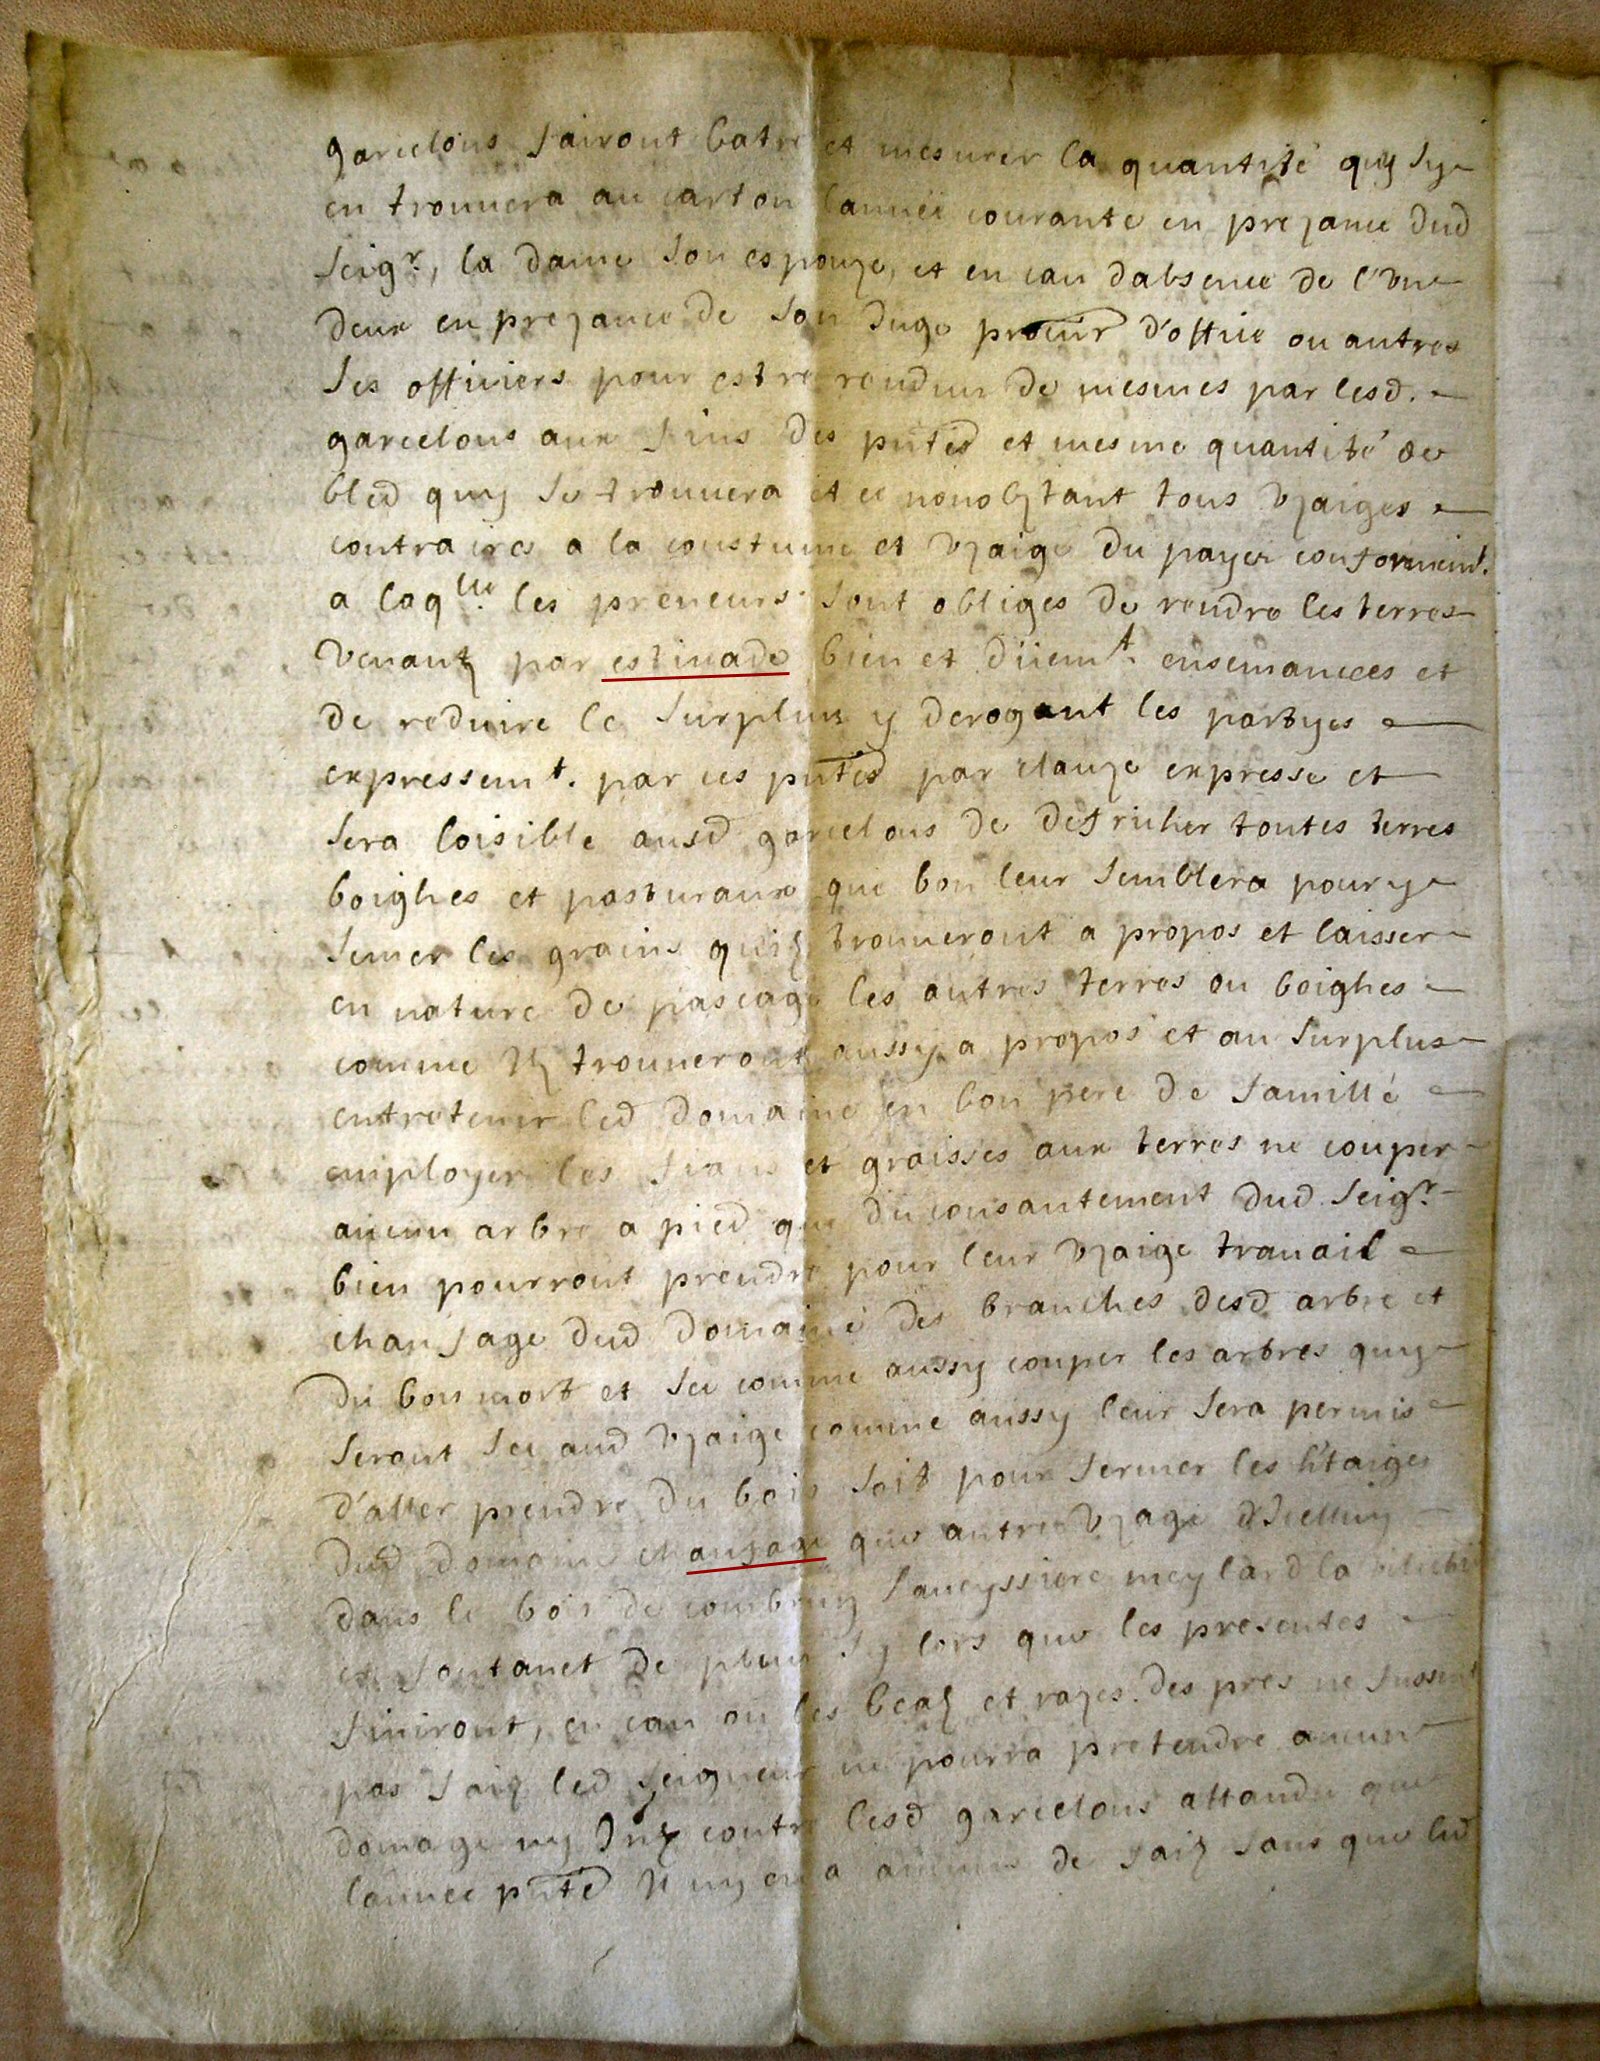 garcelons fairont batre et mesurer la quantité quy sy
en trouvera au carton lannée courante en prezance dud
seigr, la dame son espouze, et en cau dabsence de l'un
deux en prezance de son Juge procur d'office ou autres
ses officiers pour estre rendus de mesmes par lesd.
garcelons aux fins des pntes et mesme quantité de
bled quy se trouvera et ce nonobstant tous uzaiges
contraires a la coustume et uzaige du payer conformemt.
a laqlle les preneurs sont obliges de rendre les terres
venant par estivade bien et düemt. ensemancees et
de reduire le surplus y derogant les partyes
expressemt. par ces pntes par clauze expresse et
sera loisible ausd garcelons de defricher toutes terres
boighes et pasturaux que bon leur semblera pour y
semer les grains quilz trouveront a propos et laisser
en nature de pascage les autres terres ou boighes
comme Ilz trouveront aussy a propos et au surplus
entretenir led domaine en bon pere de famille
employer les fians et graisses aux terres ne couper
aucun arbre a pied que du consantement dud seigr
bien pourront prendre pour leur uzaige travail
chaufage dud domaine des branches desd arbre et
du bois mort et sec comme aussy couper les arbres quy
seront sec aud uzaige comme aussy leur sera permis
d'aller prendre du bois soit pour fermer les h'taiges
dud domaine chaufage que autre uzage d'Icelluy
dans le bois de faueyssiere meylard la
et fontanet de plus sy lors que les presentes
finiront, en cau ou les bealz et razes des pres ne fussent
pas faiz led seigneur ne pourra pretendre aucun
domage ny Intz contre lesd garcelons attandu que
lannee pnte Il ny en a aucuns de faiz sans que led